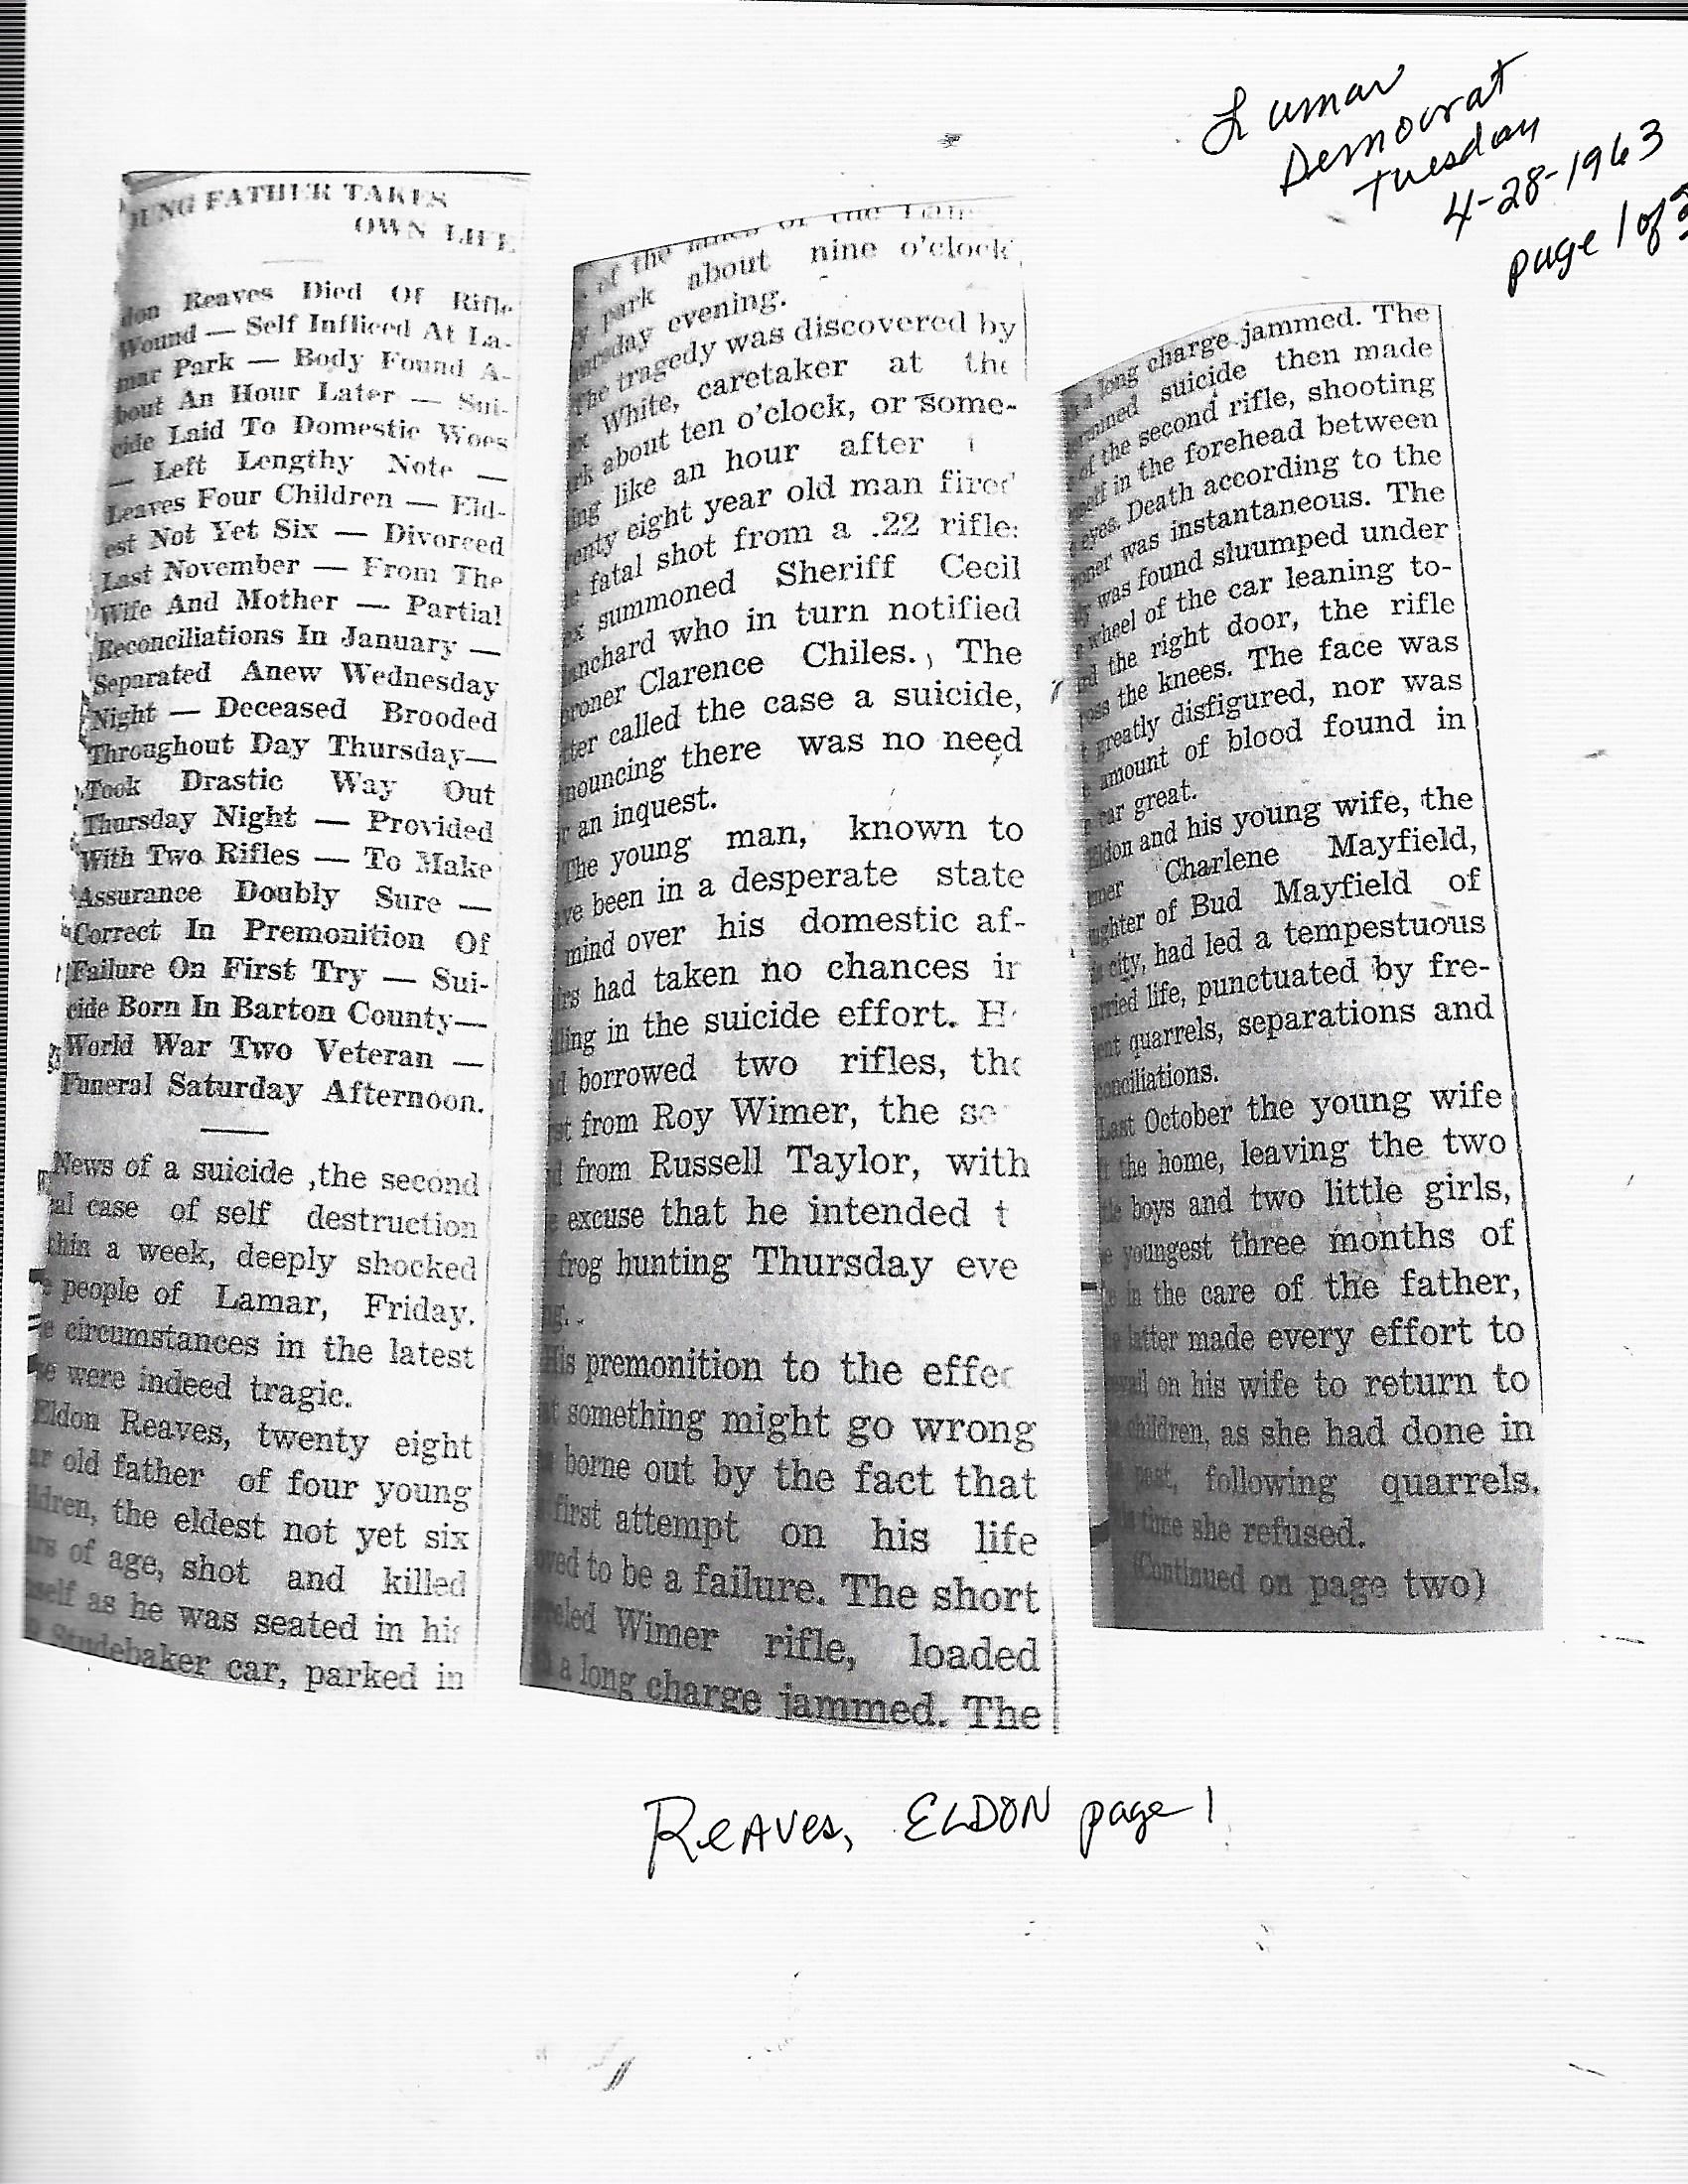 Lamar
Democrat
Tuesday
4-28-1963
page 1 of 2
UNG FATHER TAKES
OWN LIFE
don Reaves Died Of Rifle
Wound — Self Infliced At La-
mar Park — Body Found A-
bout An Hour Later — Sui-
cide Laid To Domestic Woes
— Left Lengthy Note —
Leaves Four Children — Eld-
est Not Yet Six — Divorced
Last November — From The
Wife And Mother — Partial
Reconciliations In January —
Separated Anew Wednesday
Night — Deceased Brooded
Throughout Day Thursday—
Took Drastic Way Out
Thursday Night — Provided
With Two Rifles — To Make
Assurance Doubly Sure —
Correct In Premonition Of
Failure On First Try — Sui-
cide Born In Barton County—
World War Two Veteran —
Funeral Saturday Afternoon.
News of a suicide ,the second
al case of self destruction
thin a week, deeply shocked
e people of Lamar, Friday.
e circumstances in the latest
e were indeed tragic.
Eldon Reaves, twenty eight
ar old father of four young
ldren, the eldest not yet six
ars of age, shot and killed
mself as he was seated in his
Studebaker car, parked in
of the
y park about nine o'clock
ursday evening.
The tragedy was discovered by
White, caretaker at the
rk about ten o'clock, or some-
ing like an hour after
enty eight year old man fired
e fatal shot from a .22 rifle.
ex summoned Sheriff Cecil
anchard who in turn notified
oroner Clarence Chiles., The
tter called the case a suicide,
nouncing there was no need
r an inquest.
The young man, known to
ve been in a desperate state
mind over his domestic af-
irs had taken no chances in
lling in the suicide effort. H
d borrowed two rifles, the
st from Roy Wimer, the se
d from Russell Taylor, with
e excuse that he intended t
frog hunting Thursday eve
ng.
His premonition to the effec
t something might go wrong
borne out by the fact that
first attempt on his life
oved to be a failure. The short
reled Wimer rifle, loaded
a long charge jammed. The
a long charge jammed. The
ermined suicide then made
of the second rifle, shooting
mself in the forehead between
eyes. Death according to the
oner was instantaneous. The
y was found sluumped under
wheel of the car leaning to-
rd the right door, the rifle
oss the knees. The face was
t greatly disfigured, nor was
e amount of blood found in
car great.
Eldon and his young wife, the
mer Charlene Mayfield,
ughter of Bud Mayfield of
is city, had led a tempestuous
arried life, punctuated by fre-
ent quarrels, separations and
onciliations.
Last October the young wife
t the home, leaving the two
tle boys and two little girls,
e youngest three months of
e in the care of the father,
he latter made every effort to
evail on his wife to return to
e children, as she had done in
past, following quarrels.
is time she refused.
(Continued on page two)
Reaves, ELDON page 1